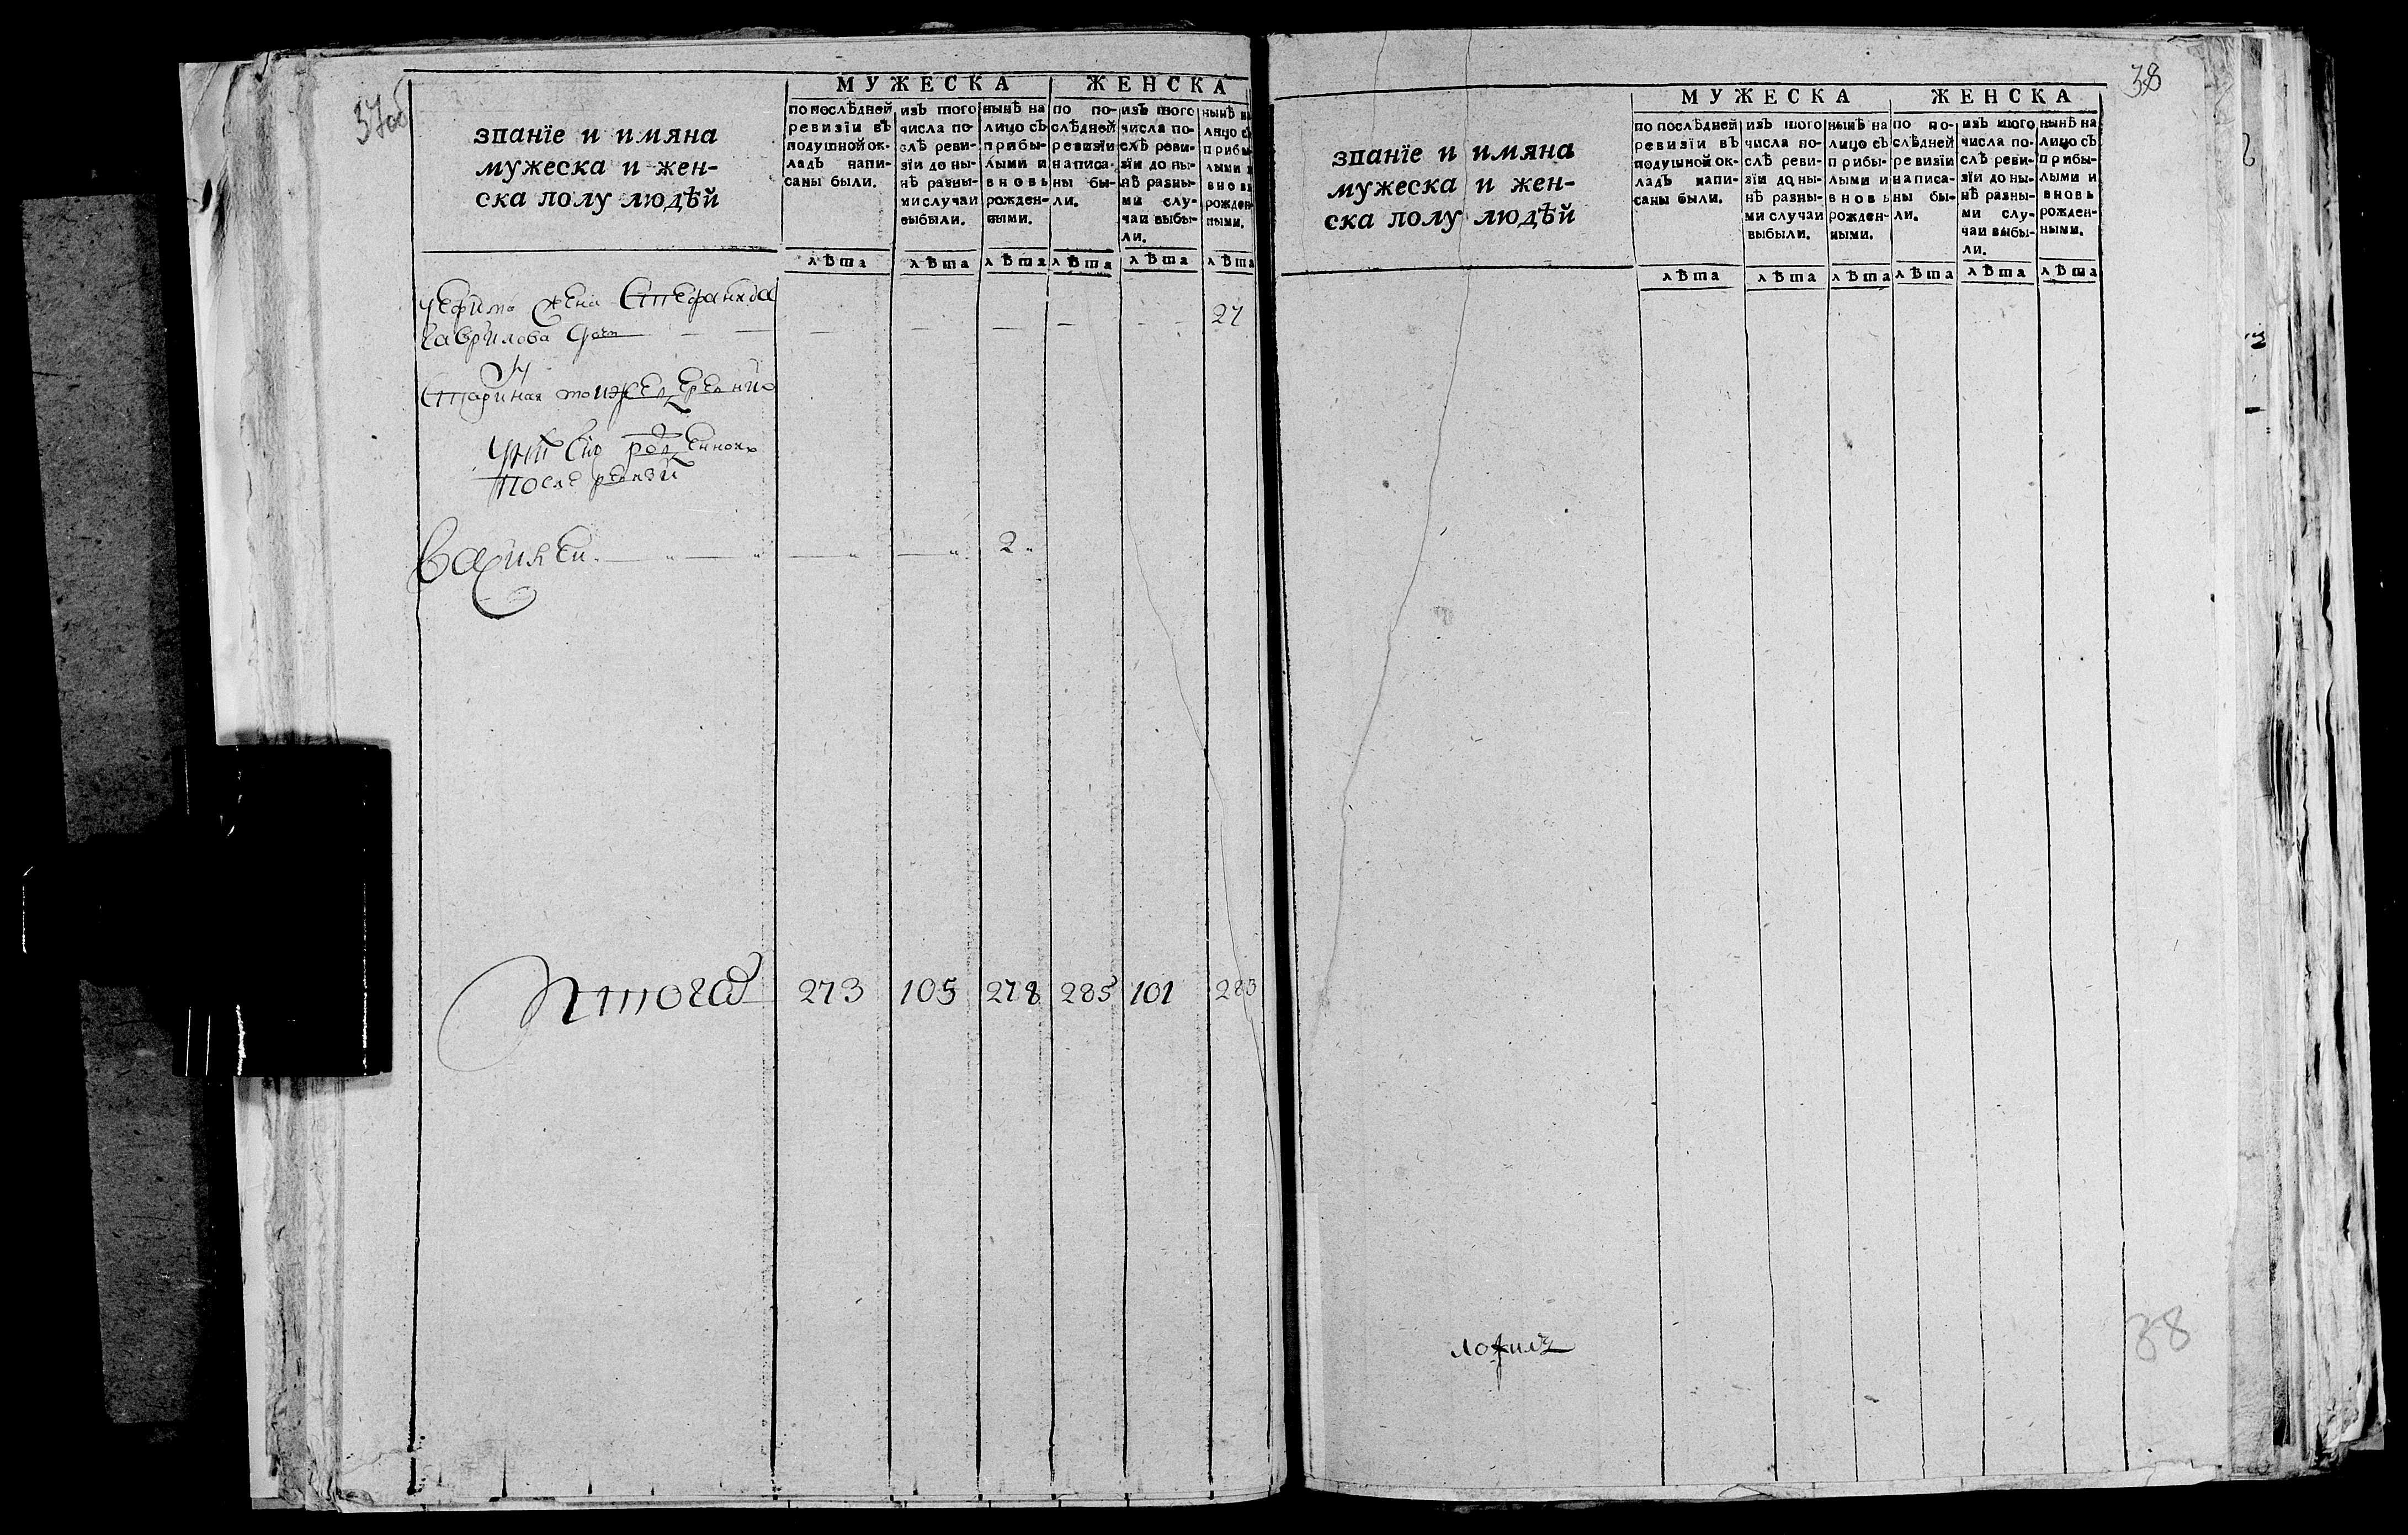 37об
МУЖЕСКА ЖЕНСКА
званїе и имяна
мужеска и жен-
ска полу людѣй
по послѣдней
ревизїи въ
подушной ок-
ладъ напи-
саны были.
изъ того
числа по-
слѣ реви-
зїи до ны-
нѣ разны-
ми случаи
выбыли.
нынѣ на
лицо съ
прибы-
лыми и
вновь
рожден-
ными.
по по-
слѣдней
ревизїи
написа-
ны бы-
ли.
изъ того
числа по-
слѣ реви-
зїи до ны-
нѣ разны-
ми слу-
чаи выбы-
ли.
нынѣ на
лицо съ
прибы-
лыми и
вновь
рожден-
ными.
лѣта лѣта лѣта лѣта лѣта лѣта
У Ефима жена Стефанида
Гаврилова дочь 27
старинная тои же деревни
У них сн рожденнои
после ревизи
Василеи 2
Итого 273 105 278 285 101 283
38
МУЖЕСКА ЖЕНСКА
званїе и имяна
мужеска и жен-
ска полу людѣй
по послѣдней
ревизїи въ
подушной ок-
ладъ напи-
саны были.
изъ того
числа по-
слѣ реви-
зїи до ны-
нѣ разны-
ми случаи
выбыли.
нынѣ на
лицо съ
прибы-
лыми и
вновь
рожден-
ными.
по по-
слѣдней
ревизїи
написа-
ны бы-
ли.
изъ того
числа по-
слѣ реви-
зїи до ны-
нѣ разны-
ми слу-
чаи выбы-
ли.
нынѣ на
лицо съ
прибы-
лыми и
вновь
рожден-
ными.
лѣта лѣта лѣта лѣта лѣта лѣта
ложилъ
38